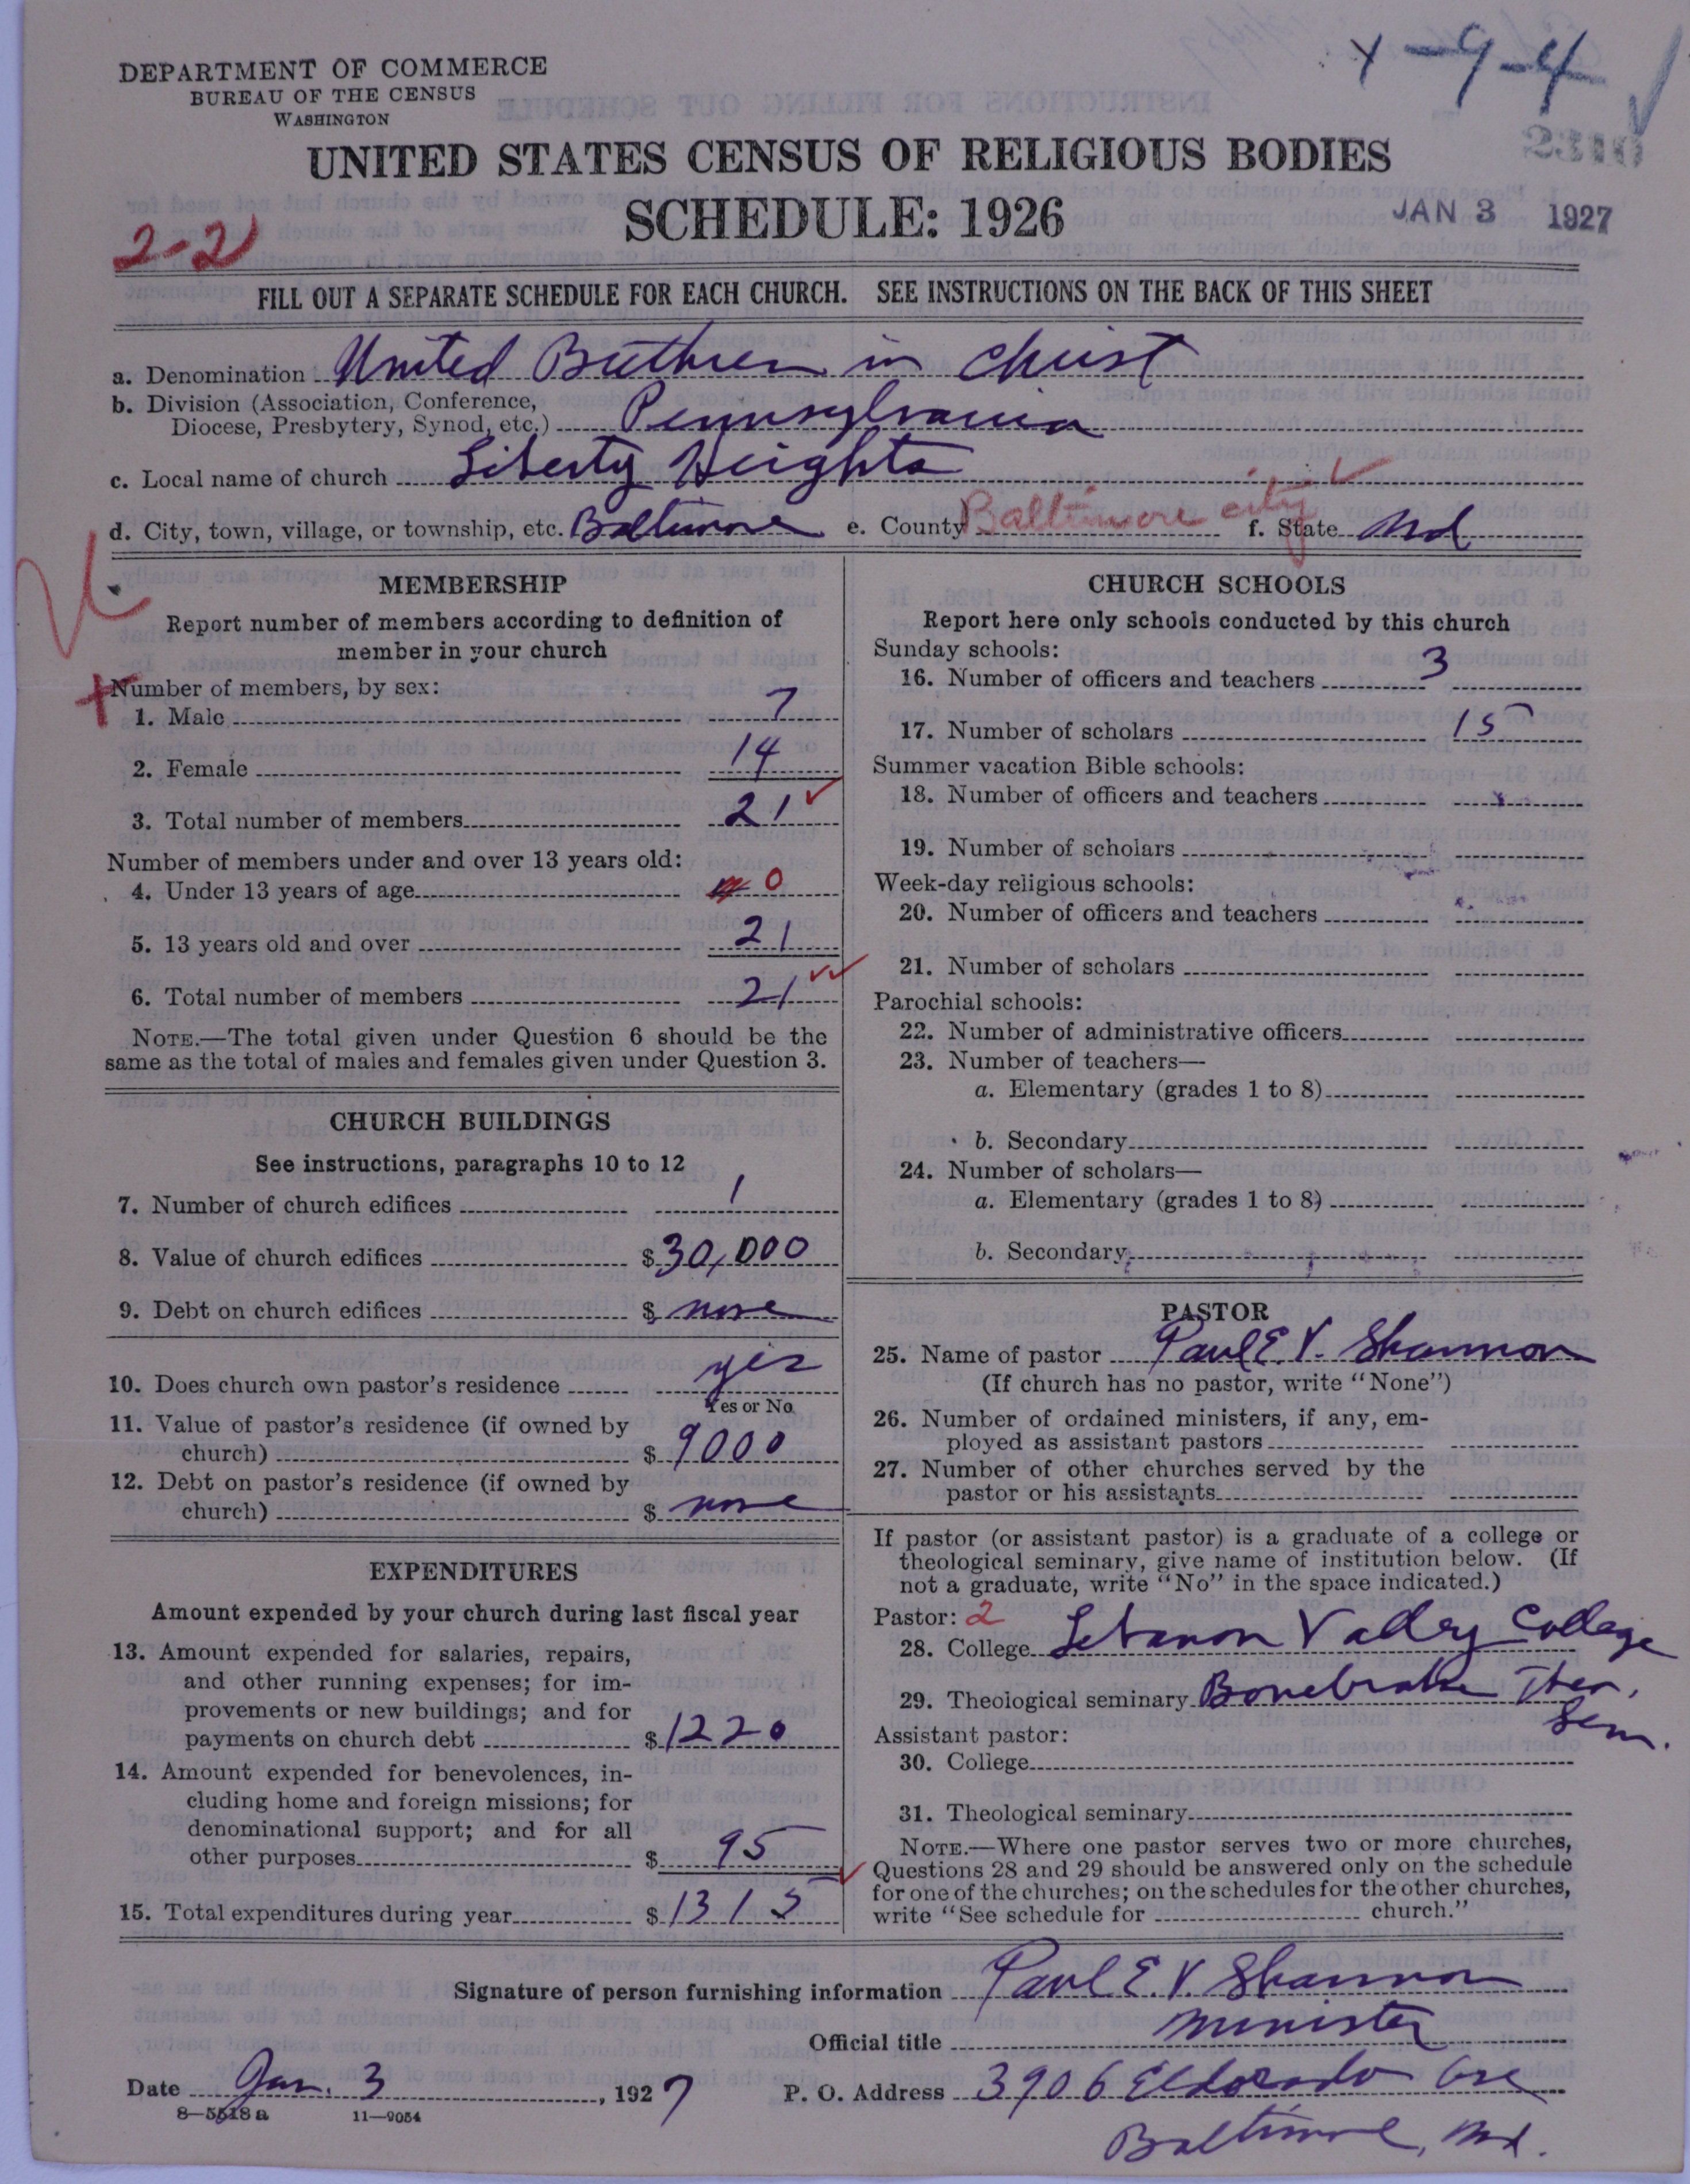 X-9-4
DEPARTMENT OF COMMERCE
BUREAU OF THE CENSUS
WASHINGTON
2310
UNITED STATES CENSUS OF RELIGIOUS BODIES
SCHEDULE: 1926
JAN 3 1927
2-2
FILL OUT A SEPARATE SCHEDULE FOR EACH CHURCH. SEE INSTRUCTIONS ON THE BACK OF THIS SHEET
a. Denomination United Brethren in Christ
b. Division (Association, Conference,
Diocese, Presbytery, Synod, etc.) Pennsylvania
c. Local name of church Liberty Heights
d. City, town, village, or township, etc. Baltimore e. County Baltimore city f. State Md
MEMBERSHIP
Report number of members according to definition of
member in your church
Number of members, by sex:
1. Male 7
2. Female 14
3. Total number of members 21
Number of members under and over 13 years old:
4. Under 13 years of age 0
5. 13 years old and over 21
6. Total number of members 21
NOTE.—The total given under Question 6 should be the
same as the total of males and females given under Question 3.
CHURCH BUILDINGS
See instructions, paragraphs 10 to 12
7. Number of church edifices 1
8. Value of church edifices $30,000
9. Debt on church edifices $ none
10. Does church own pastor's residence yes
Yes or No
11. Value of pastor's residence (if owned by
church) $ 9000
12. Debt on pastor's residence (if owned by
church) $ none
EXPENDITURES
Amount expended by your church during last fiscal year
13. Amount expended for salaries, repairs,
and other running expenses; for im-
provements or new buildings; and for
payments on church debt $1220
14. Amount expended for benevolences, in-
cluding home and foreign missions; for
denominational support; and for all
other purposes $ 95
15. Total expenditures during year $1315
CHURCH SCHOOLS
Report here only schools conducted by this church
Sunday schools:
16. Number of officers and teachers 3
17. Number of scholars 15
Summer vacation Bible schools:
18. Number of officers and teachers
19. Number of scholars
Week-day religious schools:
20. Number of officers and teachers
21. Number of scholars
Parochial schools:
22. Number of administrative officers
23. Number of teachers—
a. Elementary (grades 1 to 8)
b. Secondary
24. Number of scholars—
a. Elementary (grades 1 to 8)
b. Secondary
PASTOR
25. Name of pastor Paul E. V. Shannon
(If church has no pastor, write "None")
26. Number of ordained ministers, if any, em-
ployed as assistant pastors
27. Number of other churches served by the
pastor or his assistants
If pastor (or assistant pastor) is a graduate of a college or
theological seminary, give name of institution below. (If
not a graduate, write "No" in the space indicated.)
Pastor: 2
28. College Lebanon Valley College
29. Theological seminary Bonebrake Theo.
Sem.
Assistant pastor:
30. College
31. Theological seminary
NOTE.—Where one pastor serves two or more churches,
Questions 28 and 29 should be answered only on the schedule
for one of the churches; on the schedules for the other churches,
write "See schedule for church."
Signature of person furnishing information Paul E. V. Shannon
Official title Minister
Date Jan. 3, 1927 P. O. Address 3906 Eldorado Ave
8—5518 a 11—9054
Baltimore, Md.